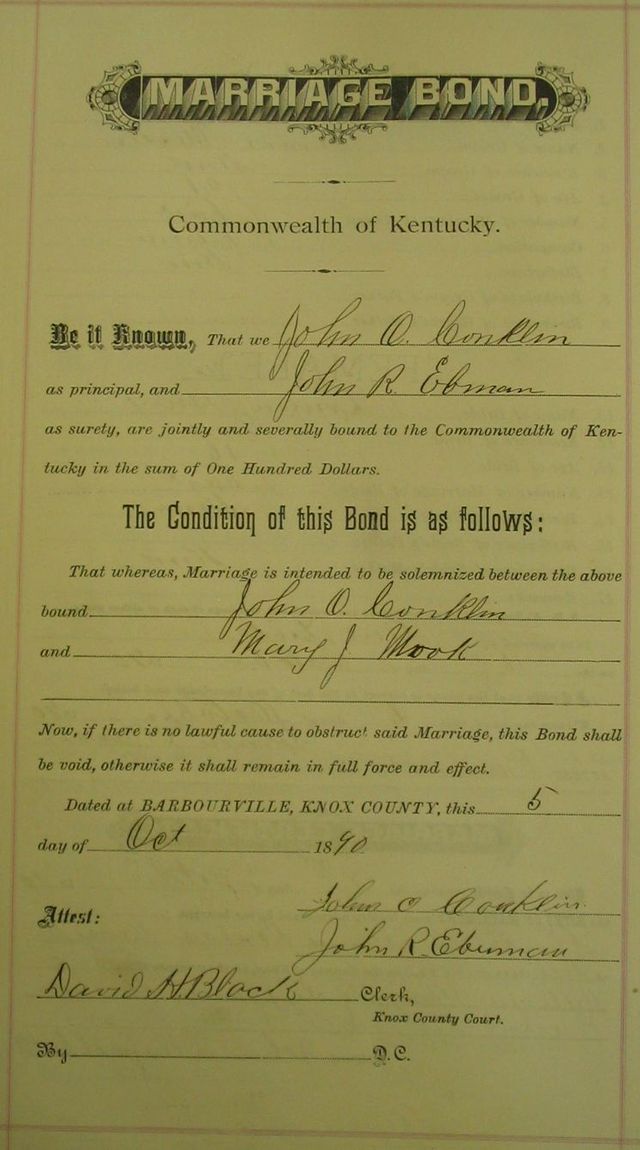 MARRIAGE BOND,
Commonwealth of Kentucky.
Be it Known, That we John O. Conklin
as principal, and John R. Ebman
as surety, are jointly and severally bound to the Commonwealth of Ken-
tucky in the sum of One Hundred Dollars.
The Condition of this Bond is as follows:
That whereas, Marriage is intended to be solemnized between the above
bound John O. Conklin
and Mary J Mook
Now, if there is no lawful cause to obstruct said Marriage, this Bond shall
be void, otherwise it shall remain in full force and effect.
Dated at BARBOURVILLE, KNOX COUNTY, this 5
day of Oct 1890
John O Conklin
Attest:
John R. Ebuman
David H Black Clerk,
Knox County Court.
By D.C.